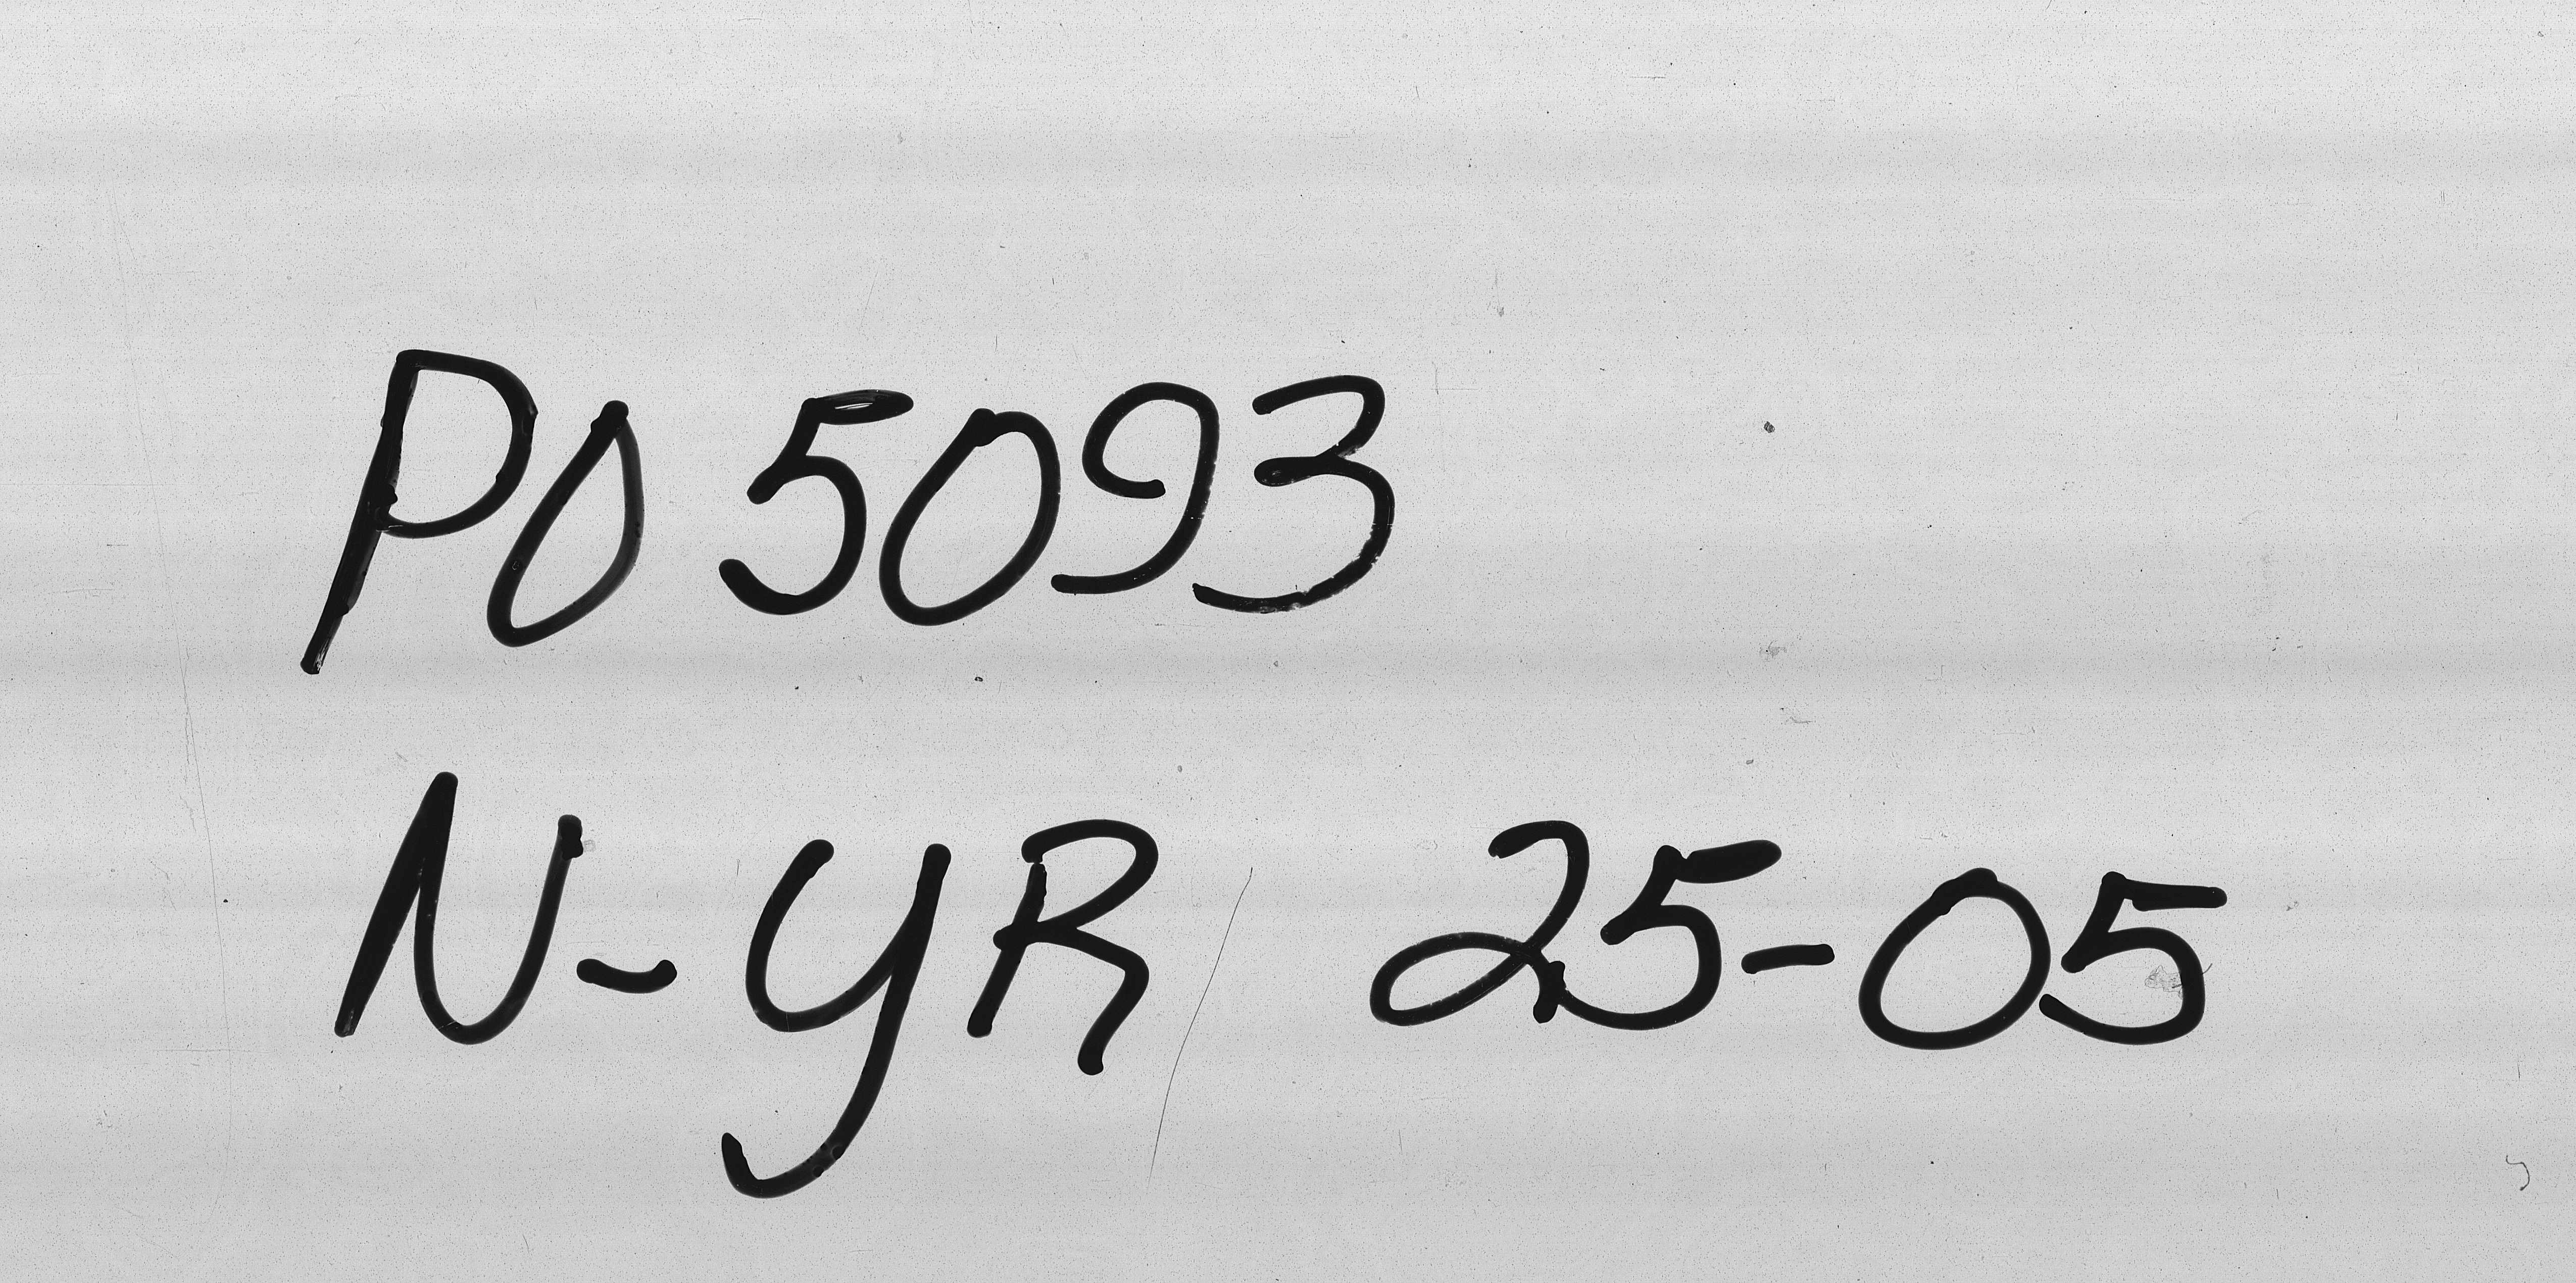 PO 5093
N-YR 25-05